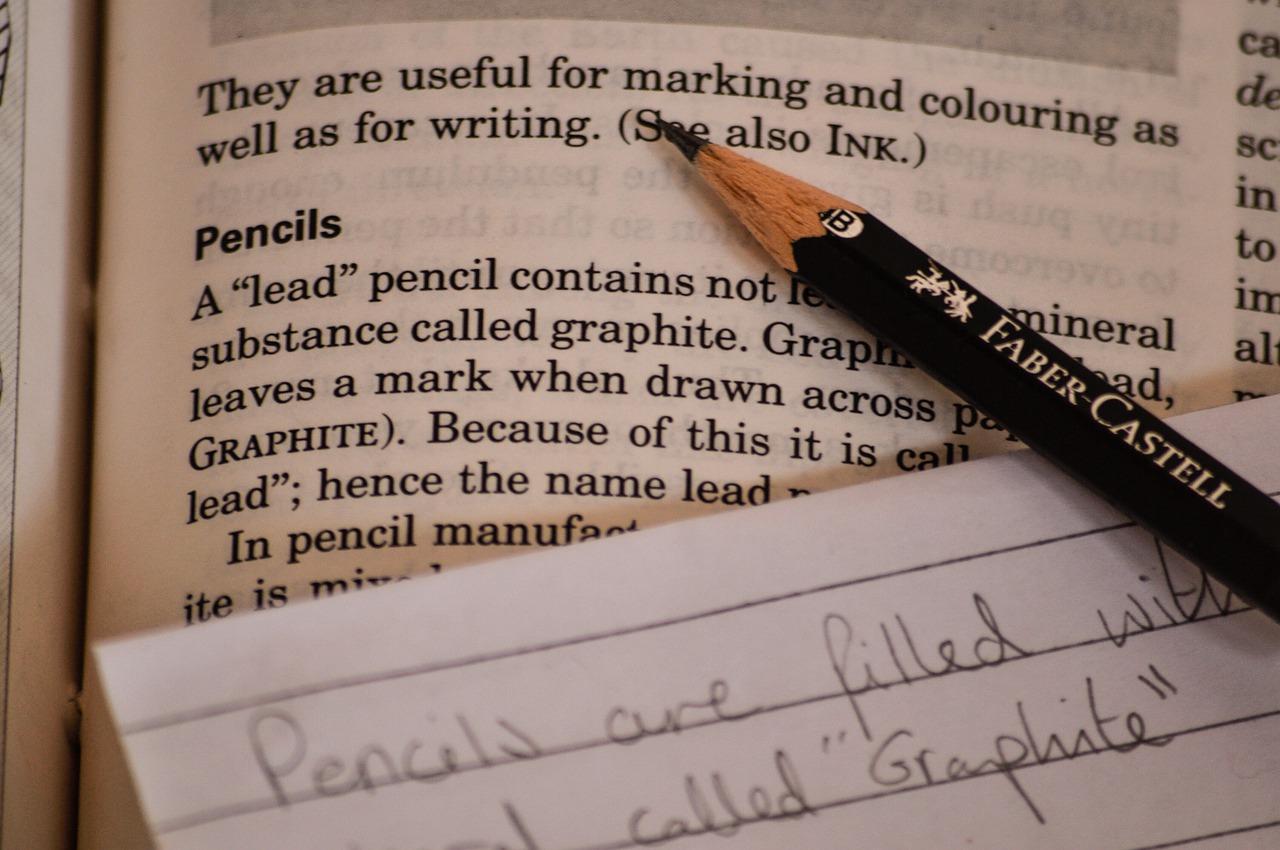 They are useful for marking and colouring as
well as for writing. (See also INK.)
Pencils
A “lead” pencil contains not mineral
substance called graphite.
leaves a mark when drawn across
GRAPHITE). Because of this it is
lead”; hence the name lead
In pencil
ite is
B
FABER-CASTELL
Pencils are filled with
called "Graphite"
in
to